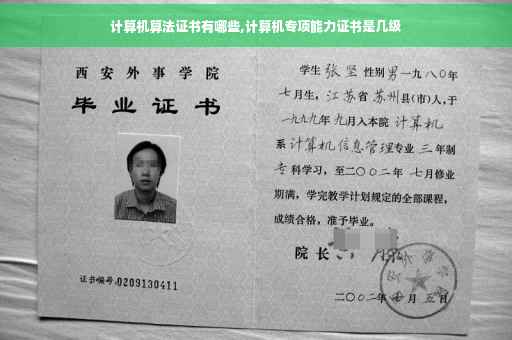 计算机算法证书有哪些,计算机专项能力证书是几级
西安外事学院
毕业证书
证书编号:0209130411
学生张坚性别男一九八〇年
七月生,江苏省苏州县(市)人,于
一九九九年九月入本院计算机
系计算机信息管理专业三年制
专科学习,至二〇〇二年七月修业
期满,学完教学计划规定的全部课程,
成绩合格,准予毕业。
院长
二〇〇二年 月五日